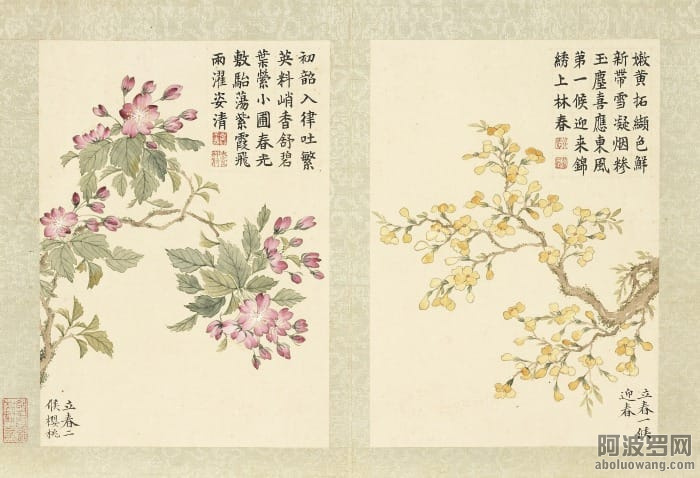 嫩黃拓纈色鮮
新帶雪凝烟糝
玉塵喜應東風
第一候迎来錦
綉上林春
立春一候
迎春
初韶入律吐繁
英料峭香舒碧
葉縈小圃春光
敷駘蕩紫霞飛
雨濯姿清
立春二
候櫻桃
阿波罗网
aboluowang.com